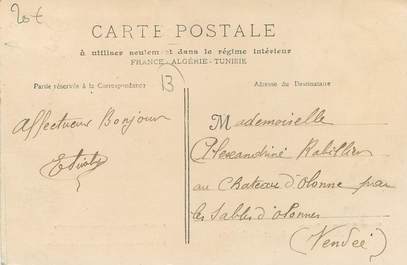 20€
CARTE POSTALE
à utiliser seulement dans le régime intérieur
FRANCE - ALGÉRIE - TUNISIE
Partie réservée à la Correspondance
13
Adresse du Destinataire
Affectueux Bonjour
Mademoiselle
Alexandrine Rabillier
au Chateau d'Olonne par
les Sables d'Olonnes
(Vendée)